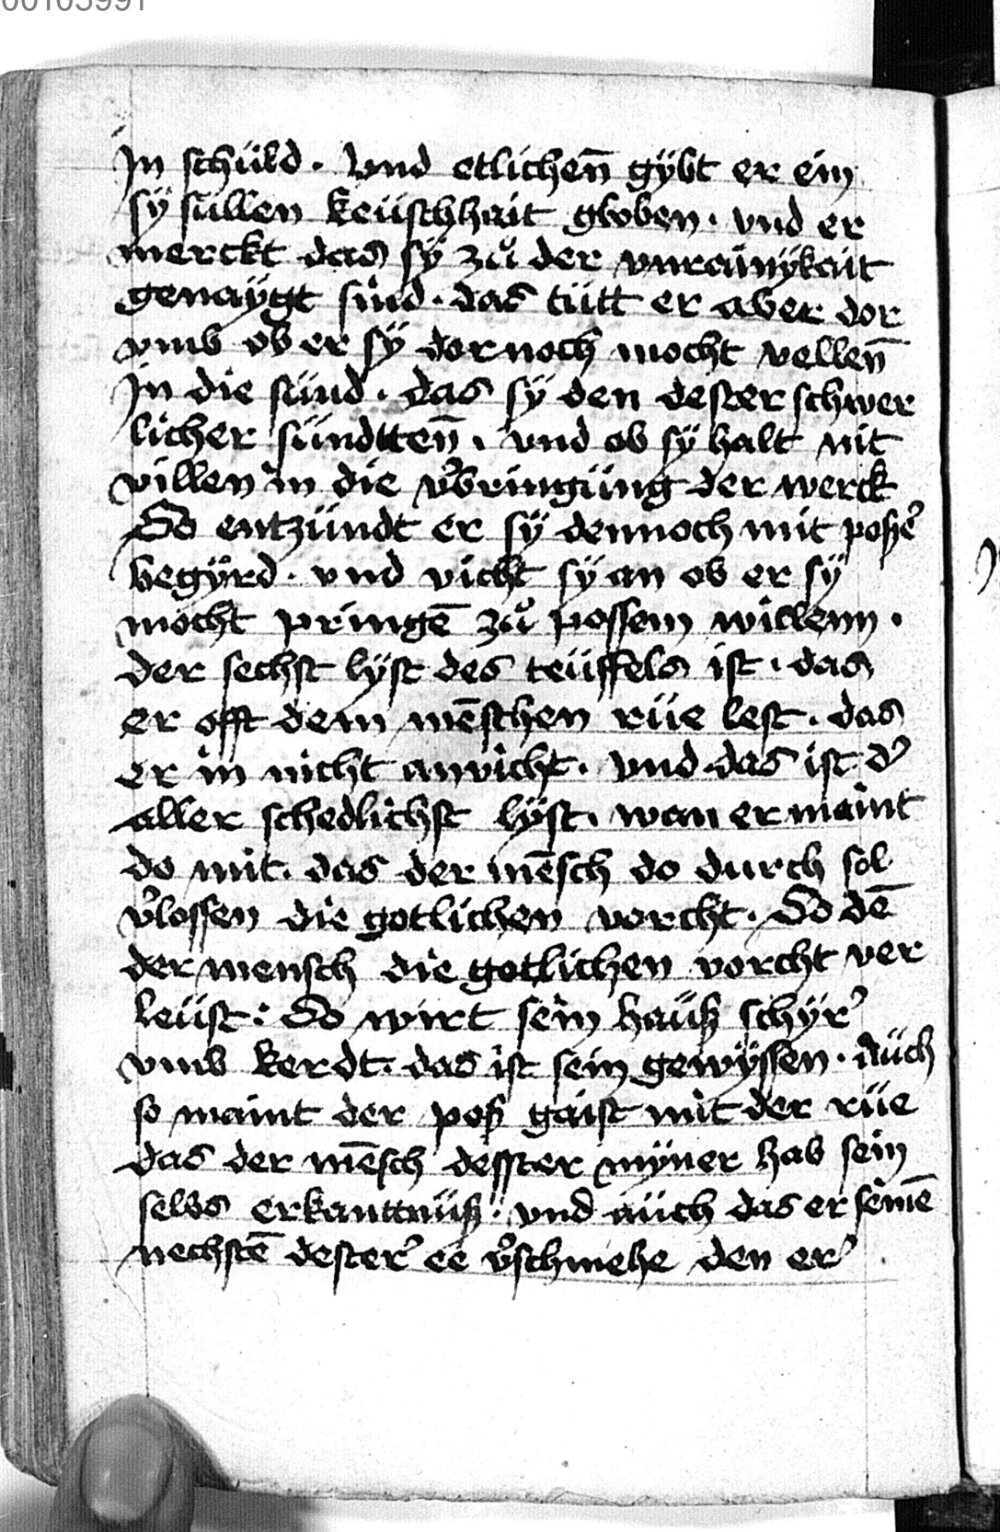 00103991
In schuld · Vnd etlichen̄ gÿbt er ein
sÿ süllen keüschhait globen · vnd er
merckt das sÿ zů der vnrainÿkait
genaÿgt sind · das tütt er aber dor
vmb ob er sÿ dornoch mocht vellen̄
In die sünd · das sÿ den dester schwer
licher sündtten̄ · vnd ob sÿ halt nit
villen in die v̉bringüng der werck
So entzündt er sÿ dennoch mit poßer̉
begÿrd · vnd vicht sÿ an ob er sÿ
mocht pringē zů possem willenn ·
der sechst lyst des teüffels ist · das
er offt dem mēschen rüe lest · das
er in nicht anvicht · vnd das ist d̉
aller schedlichst lÿst · wan er maint
do mit · das der mēsch do durch sol
v̉lossen die gotlichen vorcht · So dē
der mensch die gotlichen vorcht ver
leüst : So wirt sein haüß schÿr̉
vmb kerdt · das ist sein gewÿssen · Aüch
so maint der poß gaist mit der rüe
das der mēsch desster mÿner hab sein
selbs erkanttnüß · vnd aüch das er seinē
nechstē dester̉ ee v̉schmehe den er̉